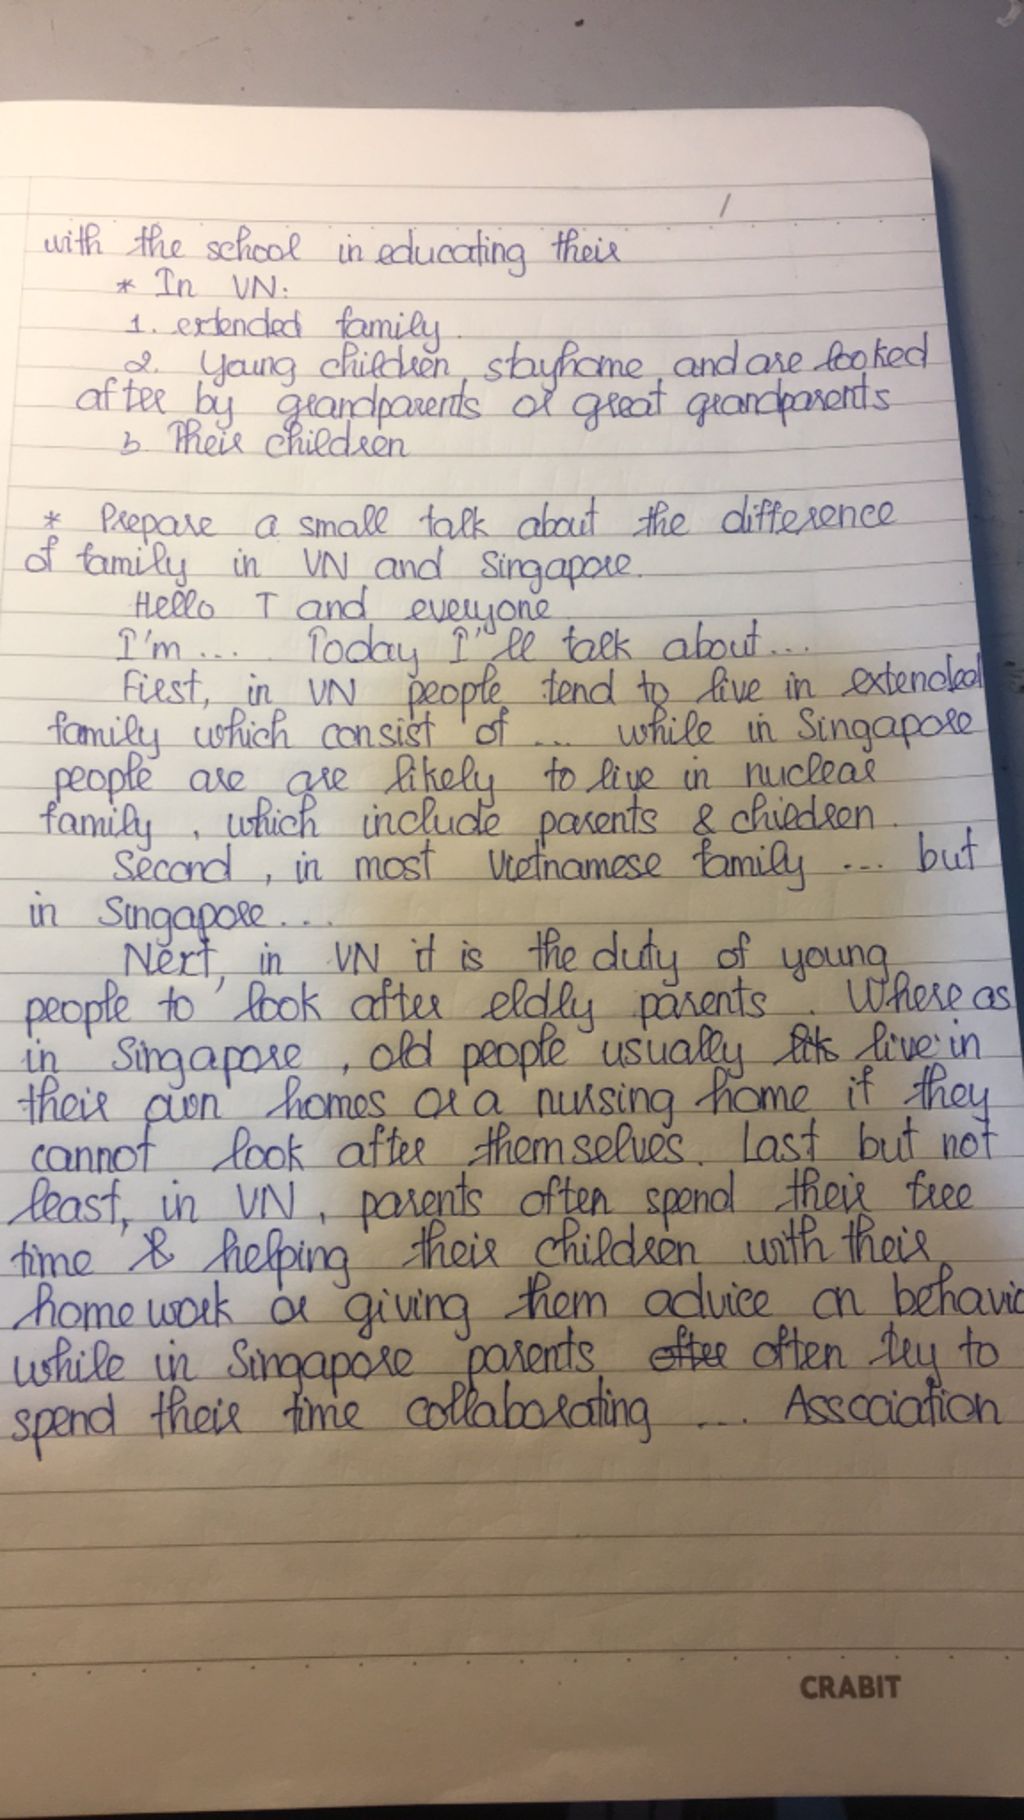 with the school in educating their
* In VN:
1. extended family.
2. Young children stayhome and are looked
after by grandparents or great grandparents
3 Their children
* Prepare a small talk about the difference
of family in VN and Singapore.
Hello T and everyone
I'm ... Today I'll talk about...
First, in VN people tend to live in extended
family which consist of ... while in Singapore
people are are likely to live in nuclear
family, which include parents & children.
Second, in most Vietnamese family ... but
in Singapore...
Next, in VN it is the duty of young
people to look after eldly parents. Where as
in Singapore, old people usually live in
their own homes or a nursing home if they
cannot look after themselves. Last but not
least, in VN, parents often spend their free
time & helping their children with their
homework or giving them advice on behavio
while in Singapore parents often try to
spend their time collaborating ... Association
CRABIT